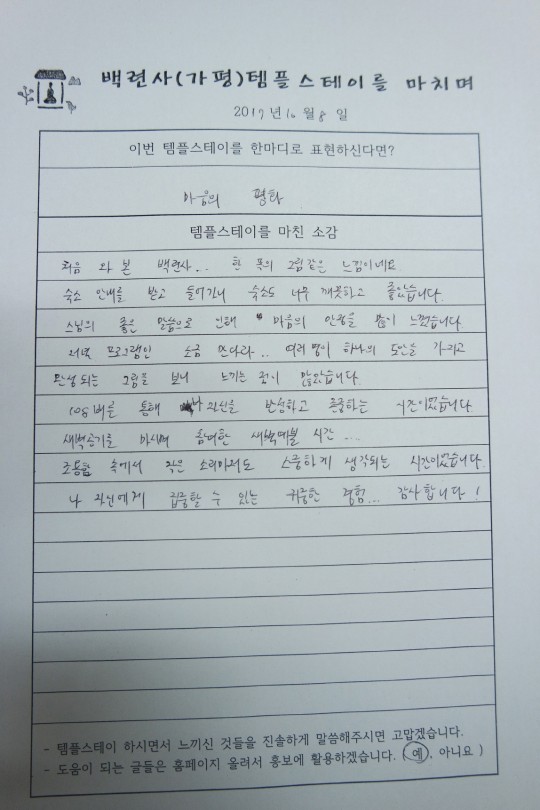 백련사(가평)템플스테이를 마치며
2017년 10월 8일
이번 템플스테이를 한마디로 표현하신다면?
마음의 평화
템플스테이를 마친 소감
처음 와 본 백련사.. 한 폭의 그림같은 느낌이네요.
숙소 안내를 받고 들어가니 숙소도 너무 깨끗하고 좋았습니다.
스님의 좋은 말씀으로 인해 마음의 안정을 많이 느꼈습니다.
저녁 프로그램인 소금 만다라.. 여러명이 하나의 도안을 가지고
완성되는 그림을 보니 느끼는 것이 많았습니다.
108배를 통해 나 자신을 반성하고 존중하는 시간이었습니다.
새벽공기를 마시며 참여한 새벽예불 시간...
조용함 속에서 작은 소리마저도 소중하게 생각되는 시간이었습니다.
나 자신에게 집중할 수 있는 귀중한 경험... 감사합니다!
- 템플스테이 하시면서 느끼신 것들을 진솔하게 말씀해주시면 고맙겠습니다.
- 도움이 되는 글들은 홈페이지 올려서 홍보에 활용하겠습니다. (예, 아니요)